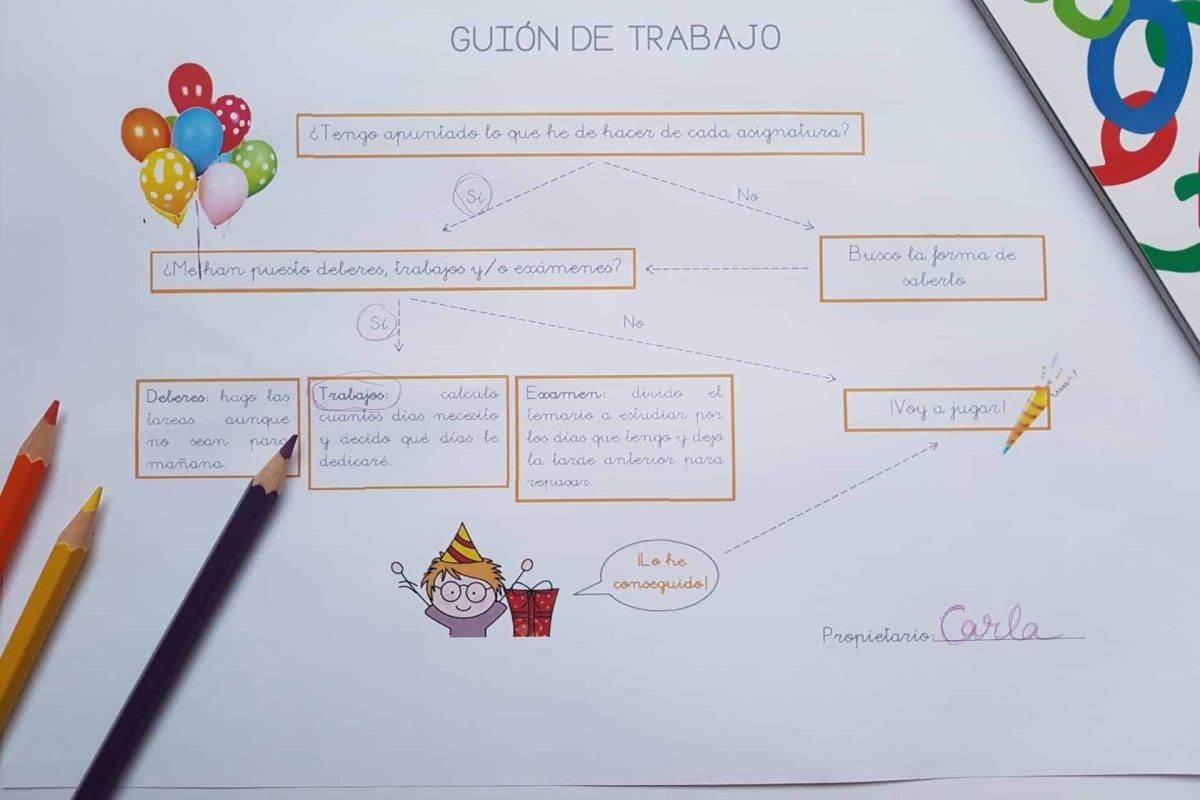 GUIÓN DE TRABAJO
¿Tengo apuntado lo que he de hacer de cada asignatura?
Sí
No
¿Me han puesto deberes, trabajos y/o exámenes?
Busco la forma de
saberlo
Sí
No
Deberes: hago las
tareas aunque
no sean para
mañana.
Trabajos: calculo
cuantos días necesito
y decido qué días le
dedicaré.
Examen: divido el
temario a estudiar por
los días que tengo y dejo
la tarde anterior para
repasar.
¡Voy a jugar!
¡Lo he
conseguido!
Propietario: Carla